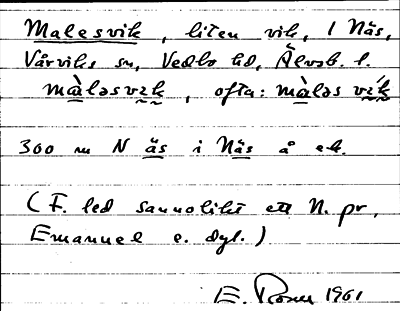 Malesvik, liten vik, i Näs,
Vårviks sn, Vedbo hd, Älvsb. l.
màləsvɪk, ofta: màləs vɪ́k
300 m N äs i Näs å ek.
(F. led sannolikt ett N. pr.
Emanuel e. dyl.)
E. 1961